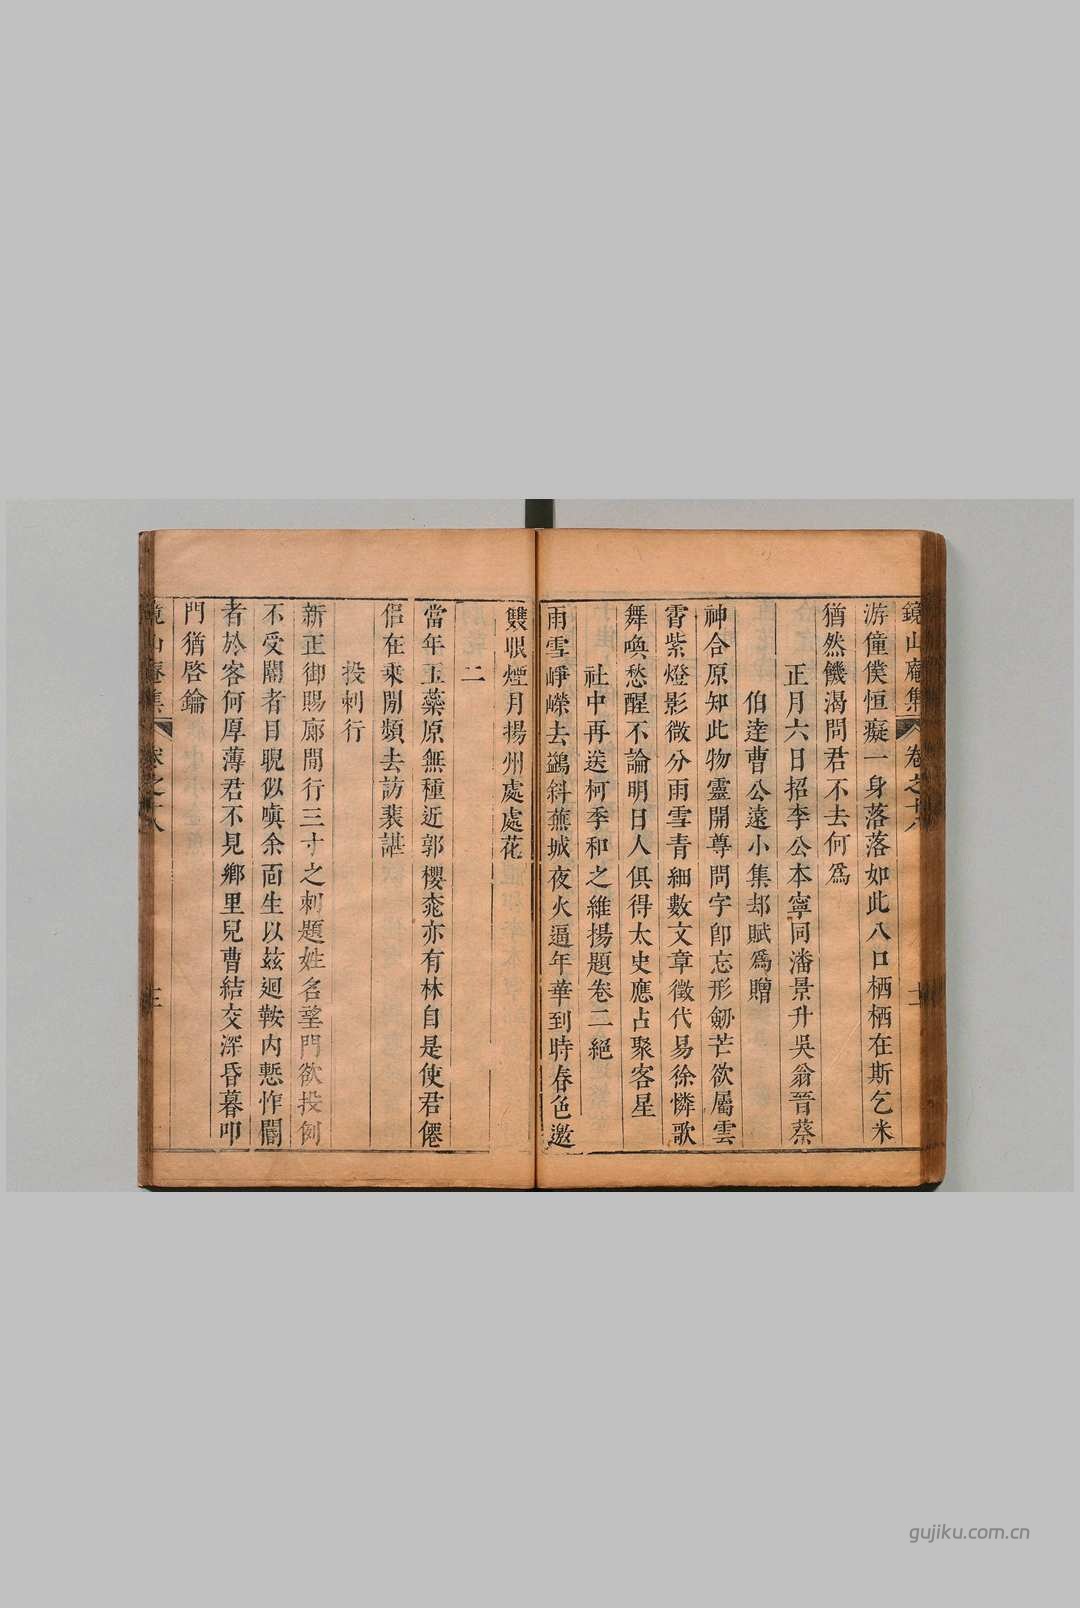 鏡山庵集 卷之十八 十二
游僮僕恒癡一身落落如此八口栖栖在斯乞米
猶然饑渴問君不去何爲
正月六日招李公本寧同潘景升吳翁晉蔡
伯達曹公遠小集却賦爲贈
神合原知此物靈開尊問字卽忘形劒芒欲屬雲
霄紫燈影微分雨雪青細數文章徵代易徐憐歌
舞喚愁醒不論明日人俱得太史應占聚客星
社中再送柯季和之維揚題卷二絕
雨雪崢嶸去鷁斜蕪城夜火逼年華到時春色邀
雙眼煙月揚州處處花
二
當年玉蘂原無種近郭櫻桃亦有林自是使君僊
侶在乘閒頻去訪裴諶
投刺行
新正御賜廊閒行三寸之刺題姓名望門欲投例
不受閽者目睨似嗔余面生以茲迴鞍內慙怍閽
者於客何厚薄君不見鄉里兒曹結交深昏暮叩
門猶啓鑰
鏡山庵集 卷之十八 十三
gujiku.com.cn